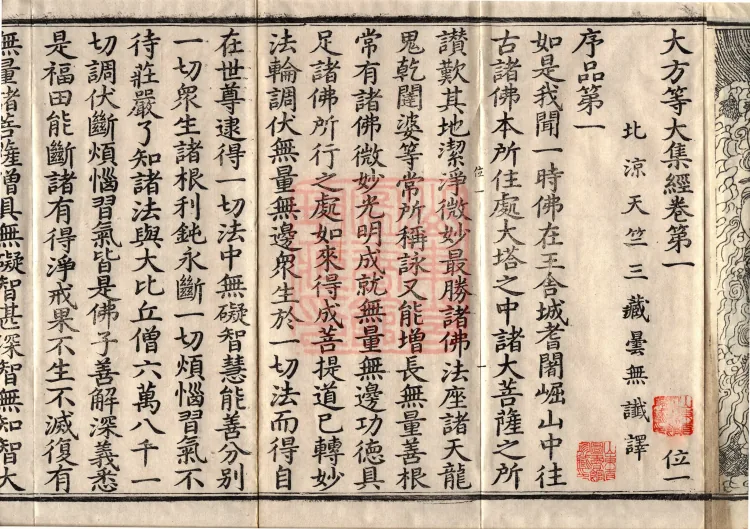 大方等大集經卷第一
位一
北涼天竺三藏曇無讖譯
序品第一
如是我聞一時佛在王舍城耆闍崛山中往
古諸佛本所住處大塔之中諸大菩薩之所
位一
讚歎其地潔淨微妙最勝諸佛法座諸天龍
鬼乾闥婆等常所稱詠又能增長無量善根
常有諸佛微妙光明成就無量無邊功德具
足諸佛所行之處如來得成菩提道已轉妙
法輪調伏無量無邊衆生於一切法而得自
在世尊逮得一切法中無礙智慧能善分別
一切衆生諸根利鈍永斷一切煩惱習氣不
待莊嚴了知諸法與大比丘僧六萬八千一
切調伏斷煩惱習氣皆是佛子善解深義悉
是福田能斷諸有得淨戒果不生不滅復有
無量諸菩薩僧具無礙智甚深智無知智大